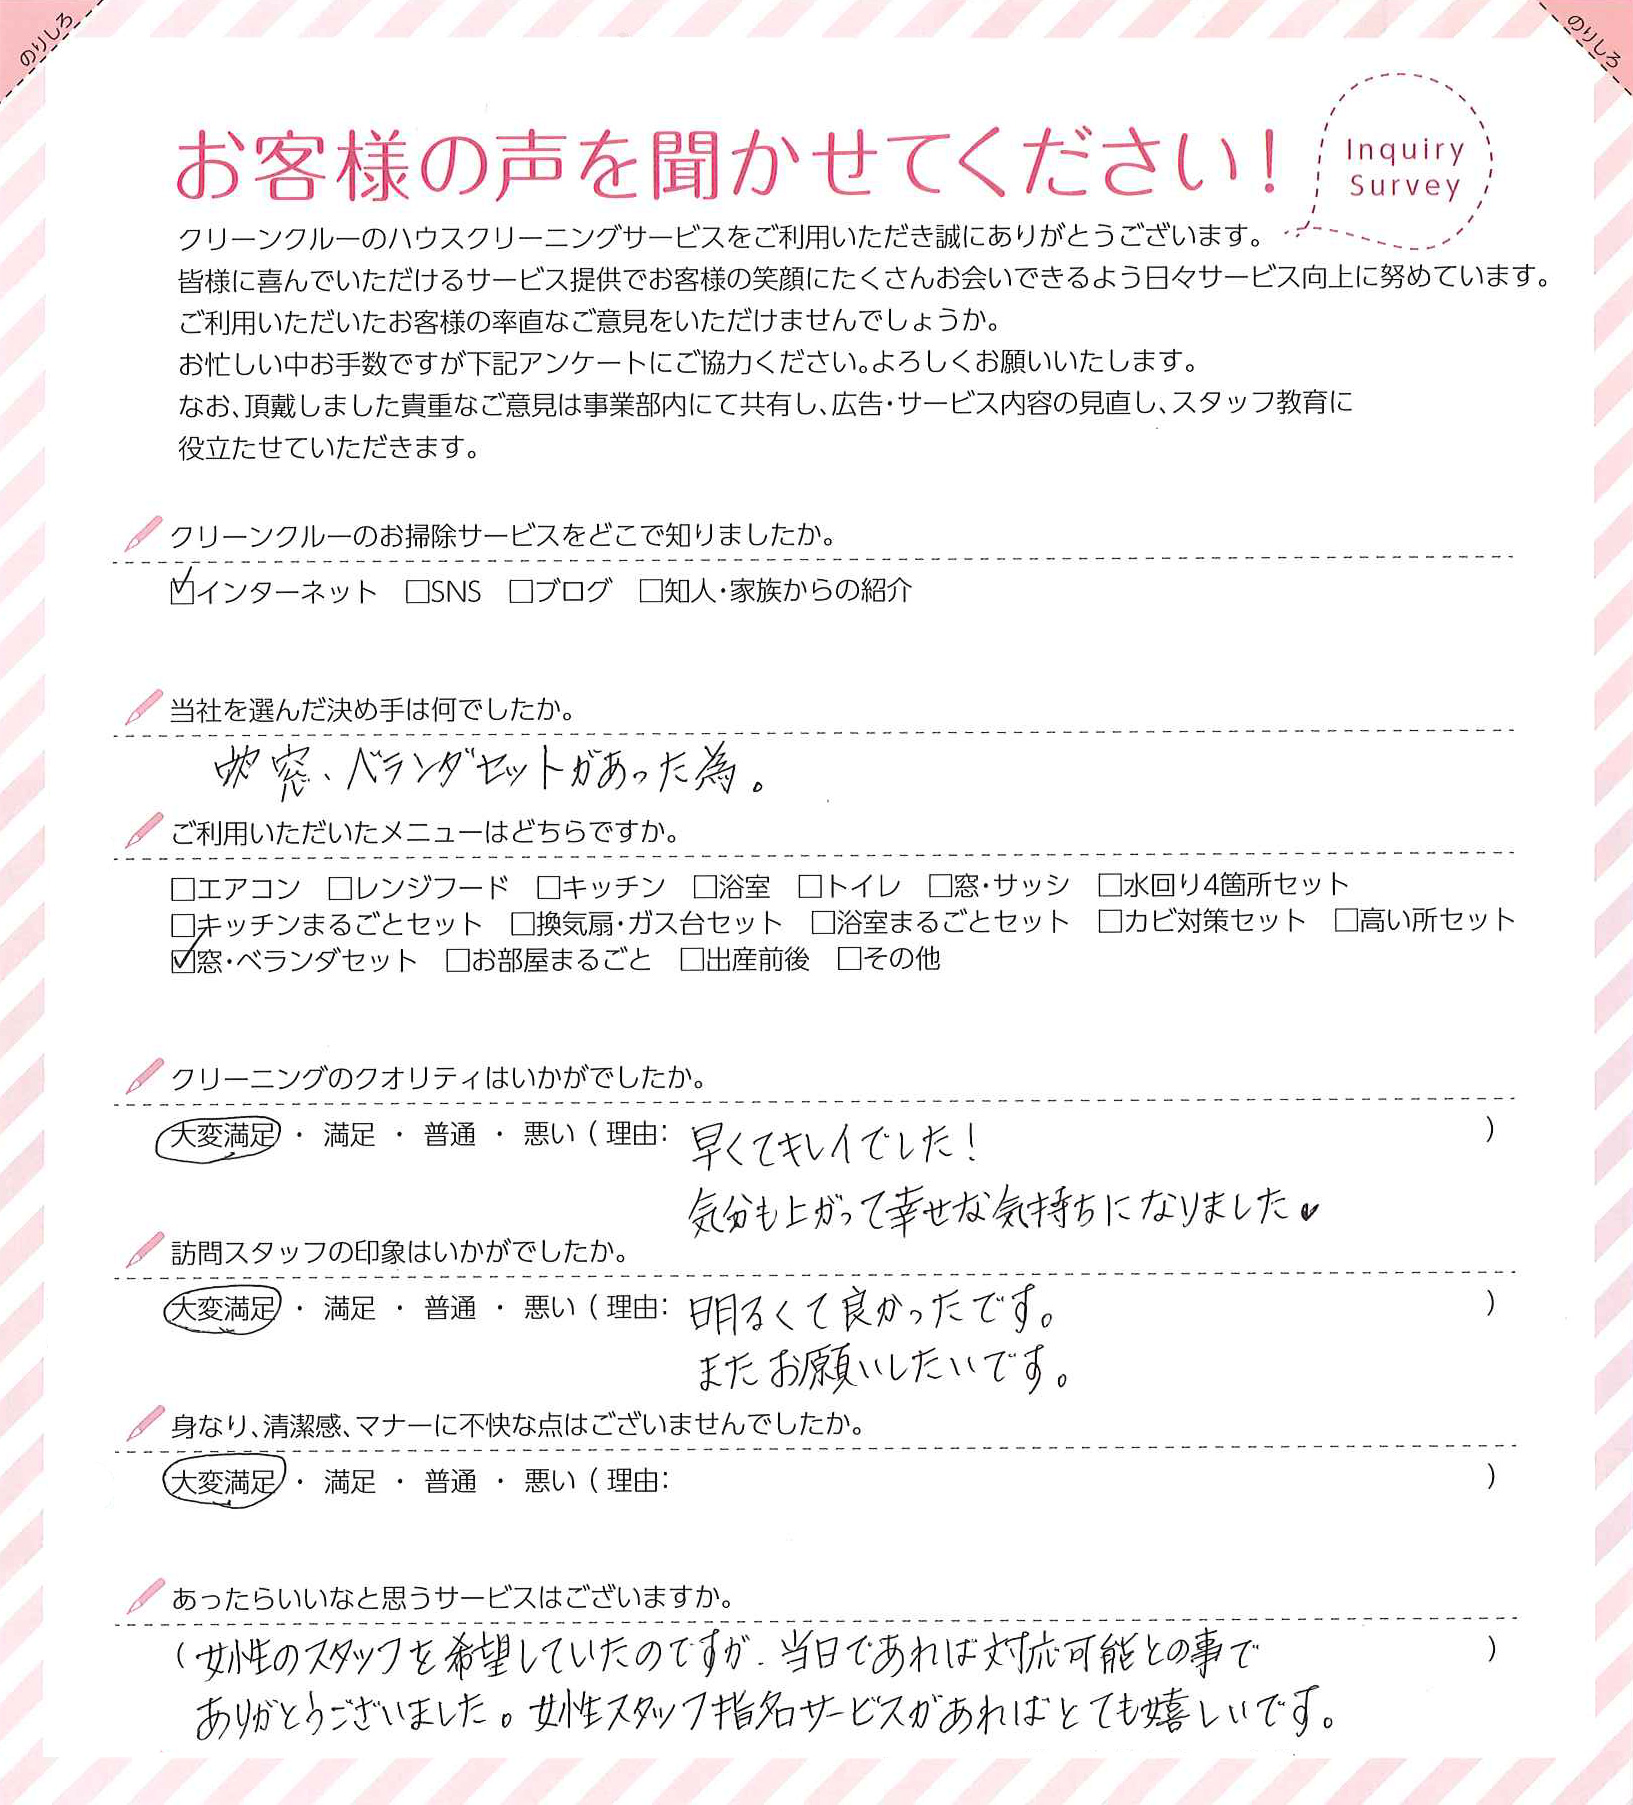 のりしろ
のりしろ
お客様の声を聞かせてください!
Inquiry
Survey
クリーンクルーのハウスクリーニングサービスをご利用いただき誠にありがとうございます。
皆様に喜んでいただけるサービス提供でお客様の笑顔にたくさんお会いできるよう日々サービス向上に努めています。
ご利用いただいたお客様の率直なご意見をいただけませんでしょうか。
お忙しい中お手数ですが下記アンケートにご協力ください。よろしくお願いいたします。
なお、頂戴しました貴重なご意見は事業部内にて共有し、広告・サービス内容の見直し、スタッフ教育に
役立たせていただきます。
クリーンクルーのお掃除サービスをどこで知りましたか。
☑インターネット □SNS □ブログ □知人・家族からの紹介
当社を選んだ決め手は何でしたか。
窓、ベランダセットがあった為。
ご利用いただいたメニューはどちらですか。
□エアコン □レンジフード □キッチン □浴室 □トイレ □窓・サッシ □水回り4箇所セット
□キッチンまるごとセット □換気扇・ガス台セット □浴室まるごとセット □カビ対策セット □高い所セット
☑窓・ベランダセット □お部屋まるごと □出産前後 □その他
クリーニングのクオリティはいかがでしたか。
大変満足 ・ 満足 ・ 普通 ・ 悪い ( 理由: 早くてキレイでした! )
気分も上がって幸せな気持ちになりました♥
訪問スタッフの印象はいかがでしたか。
大変満足 ・ 満足 ・ 普通 ・ 悪い ( 理由: 明るくて良かったです。 )
またお願いしたいです。
身なり、清潔感、マナーに不快な点はございませんでしたか。
大変満足 ・ 満足 ・ 普通 ・ 悪い ( 理由: )
あったらいいなと思うサービスはございますか。
(女性のスタッフを希望していたのですが、当日であれば対応可能との事で )
ありがとうございました。女性スタッフ指名サービスがあればとても嬉しいです。